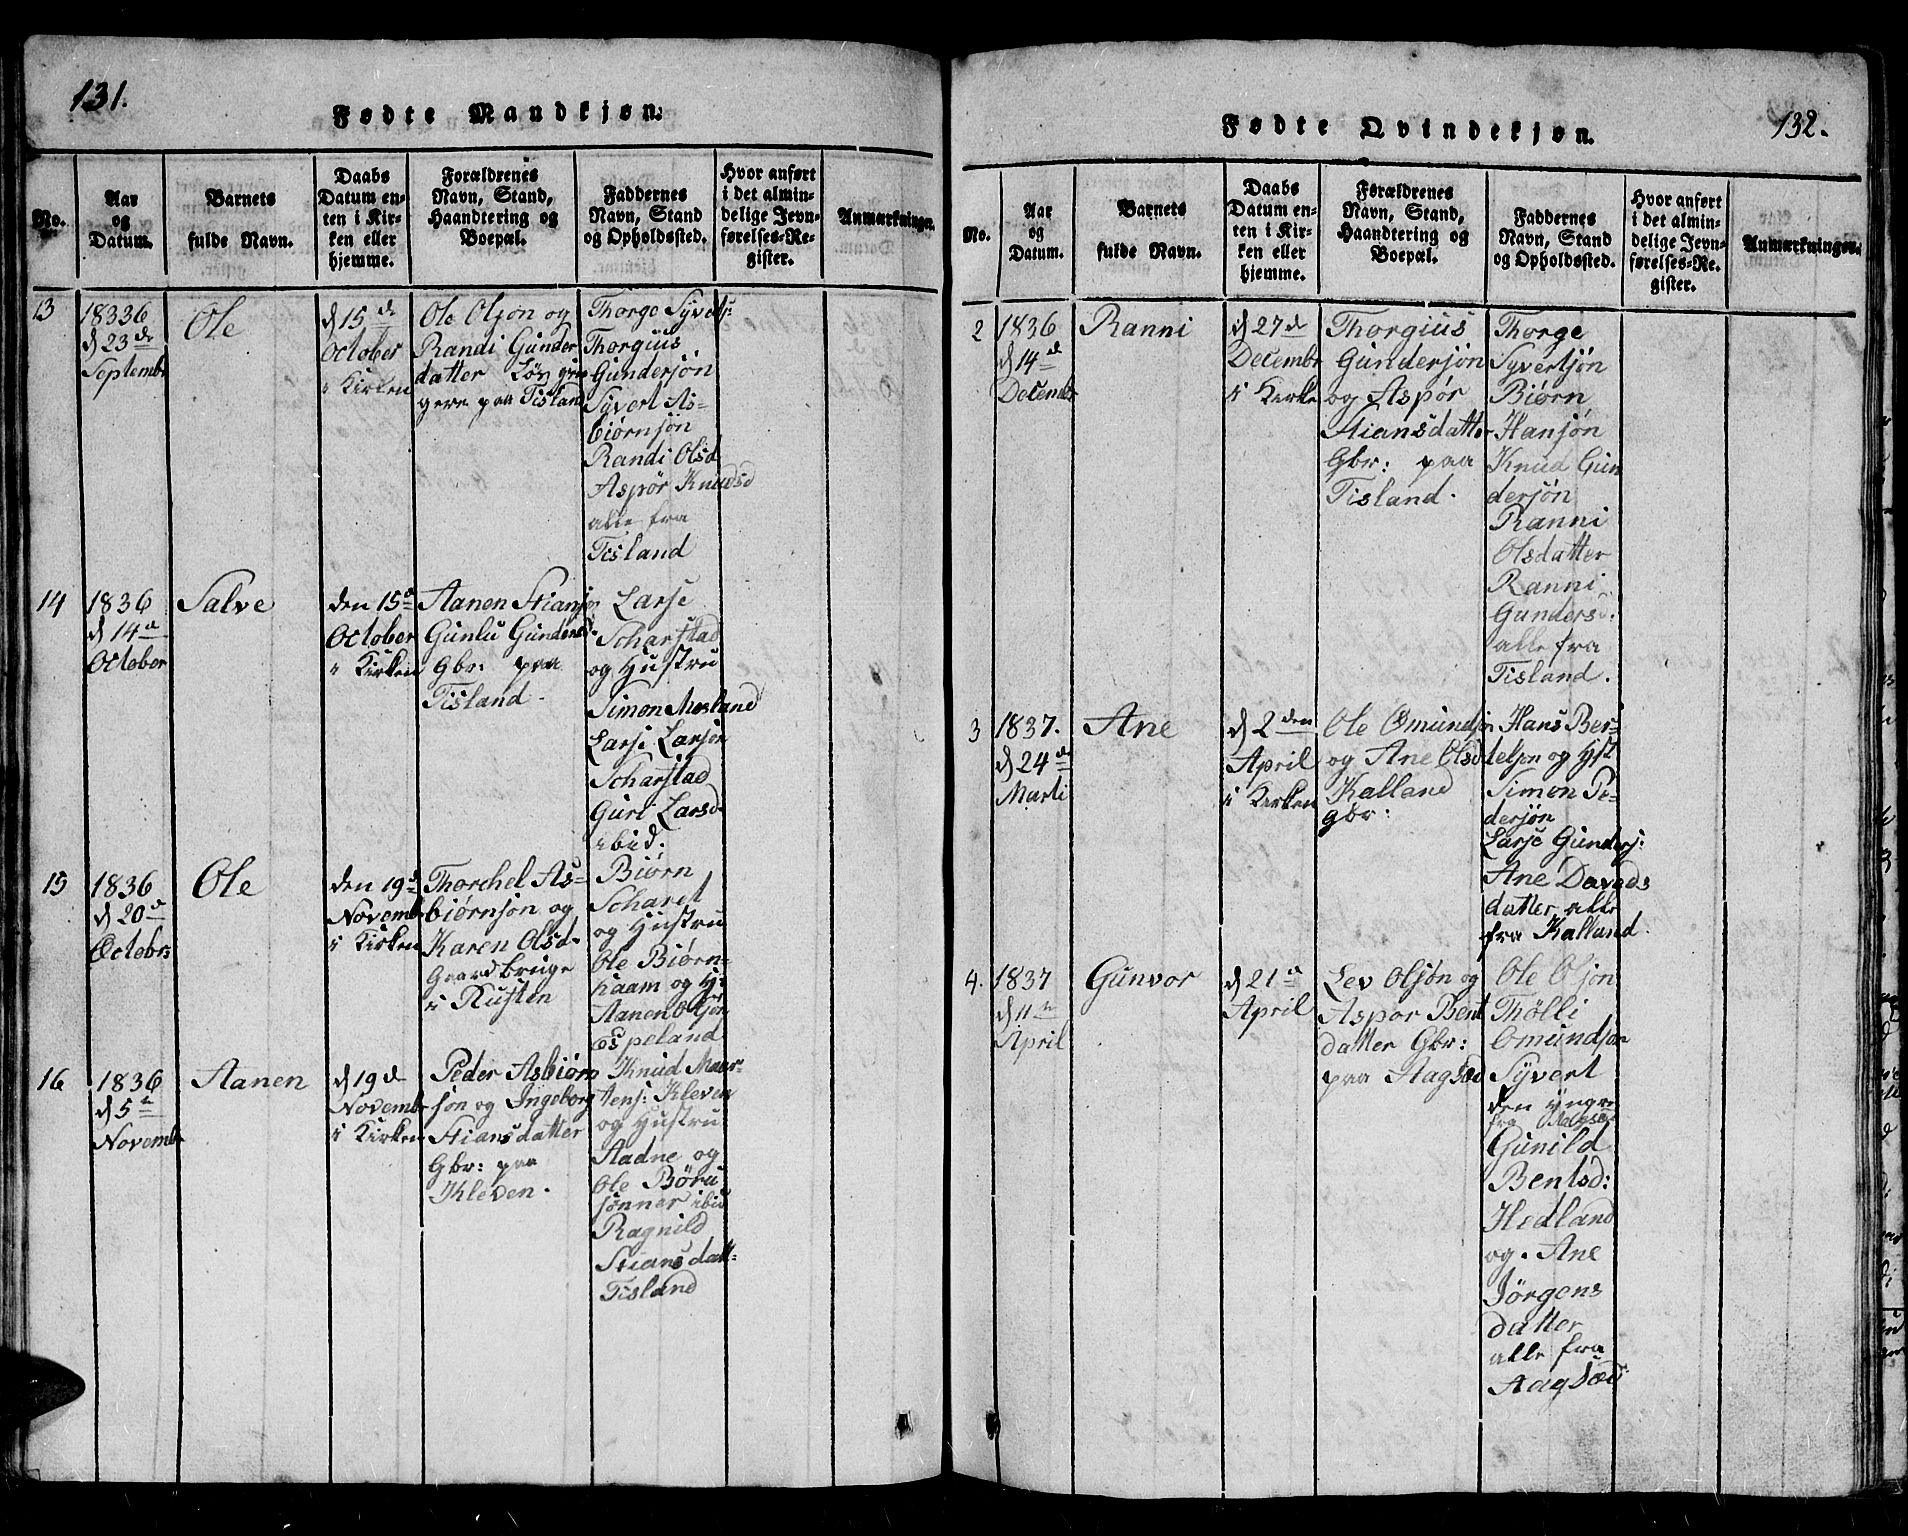 131.
Fødte Mandkjøn.
No.
Aar og Datum.
Barnets fulde Navn.
Daabs Datum enten i Kirken eller hjemme.
Forældrenes Navn, Stand, Haandtering og Boepæl.
Faddernes Navn, Stand og Opholdssted.
Hvor anført i det almindelige Jevnførelses-Register.
Anmærkninger.
13
18336
d 23de
Septembr
Ole
d 15de
October
i Kirken
Ole Olsøn og
Randi Gunder
datter
gere paa Tisland
Thorge Syverts:
Thorgius
Gundersøn
Syvert As=
biørnsøn
Randi Olsd
Aspør Knudsd
alle fra
Tisland
14
1836
d 14de
October
Salve
den 15d
October
i Kirken
Aanen Stians
Gunlu Gundersd.
Gbr: paa
Tisland.
Larse
Scharstad
og Hustru
Simon Mosland
Larse Larsøn
Scharstad
Guri Larsd
ibid.
15
1836
d 20d
Octobr:
Ole
den 19d
Novemb
i Kirken
Thorchel As=
biørnsøn og
Karen Olsd.
Gaardbruge
i Rusten
Biørn
Scharet
og Hustru
Ole Biørn=
haam og H:
Aanen Olsøn
Espeland
16
1836
d 5te
Novembr
Aanen
d 19d
Novembr
i Kirken
Peder Asbiørn
søn og Ingeborg
Stiansdatter
Gbr: paa
Kleven.
Knud Maar=
tens: Kleven
og Hustru
Aadne og
Ole Børu
sønner ibid
Ragnild
Stiansdatt=
Tisland
132.
Fødte Qvindekjøn.
No.
Aar og Datum.
Barnets fulde Navn.
Daabs Datum enten i Kirken eller hjemme.
Forældrenes Navn, Stand, Haandtering og Boepæl.
Faddernes Navn, Stand og Opholdssted.
Hvor anført i det almindelige Jevnførelses-Register.
Anmærkninger.
2
1836
d 14d
Decembr
Ranni
d 27d
Decembr
i Kirke
Thorgius
Gundersøn
og Aspør
Stiansdatter
Gbr: paa
Tisland.
Thorge
Syvertsøn
Biørn
Hansøn
Knud Gun
dersøn
Ranni
Olsdatter
Ranni
Gundersd:
alle fra
Tisland.
3
1837.
d 24de
Marti
Ane
d 2den
April
i Kirken
Ole Omundsøn
og Ane Olsd
Kalland
gbr:
Hans Ber-
telsøn og Hst
Simon Pe-
dersøn
Larse Gunders:
Ane Davids
datter alle
fra Kalland.
4.
1837
d 11te
April
Gunvor
d 21d
April
Lev Olsøn og
Aspør Bent
datter Gbr:
paa Aagsæd
Ole Olsøn
Thølli
Omundsøn
Syvert
den yngre
fra Aagsæd
Gunild
Bentsd:
Hedland
og. Ane
Jørgens
datter
alle fra
Aagsæd.